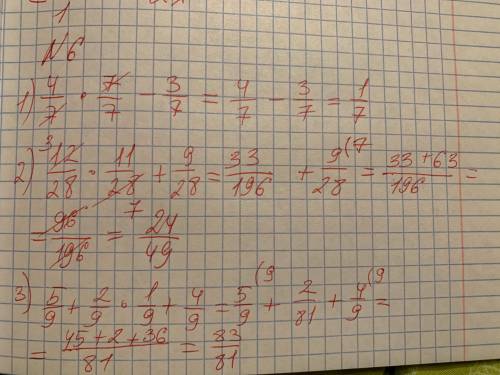 1
№6
1) 4/7 · 7/7 − 3/7 = 4/7 − 3/7 = 1/7
2) 3 12/28 · 11/28 7 + 9/28 = 33/196 + 9/28 (7 = 33+63/196 =
= 96/196 = 24/49
3) 5/9 + 2/9 · 1/9 + 4/9 = 5/9 (9 + 2/81 + 4/9 (9 =
= 45+2+36/81 = 83/81